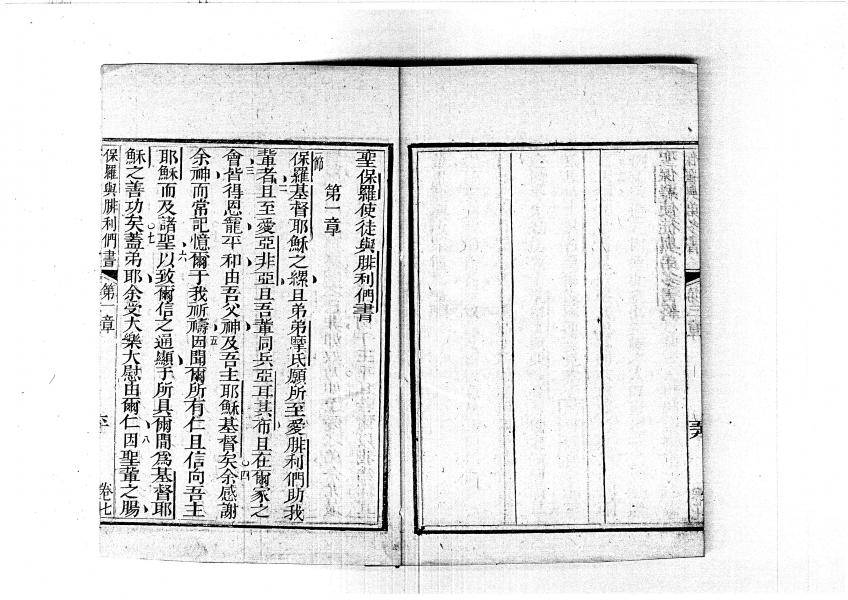 聖保羅使徒與腓利們書
第一章
一節
保羅基督耶穌之縲且弟弟摩氏願所至愛腓利們助我
輩者且至愛亞非亞且吾輩同兵亞耳其布且在爾家之
會皆得恩寵平和由吾父神及吾主耶穌基督矣余感謝
余神而常記憶爾于我祈禱因聞爾所有仁且信向吾主
耶穌而及諸聖以致爾信之通顯于所具爾間為基督耶
穌之善功矣蓋弟耶余受大樂大慰由爾仁因聖輩之腸
二
三
四
五
六
七
八
保羅與腓利們書
第一章
卷七